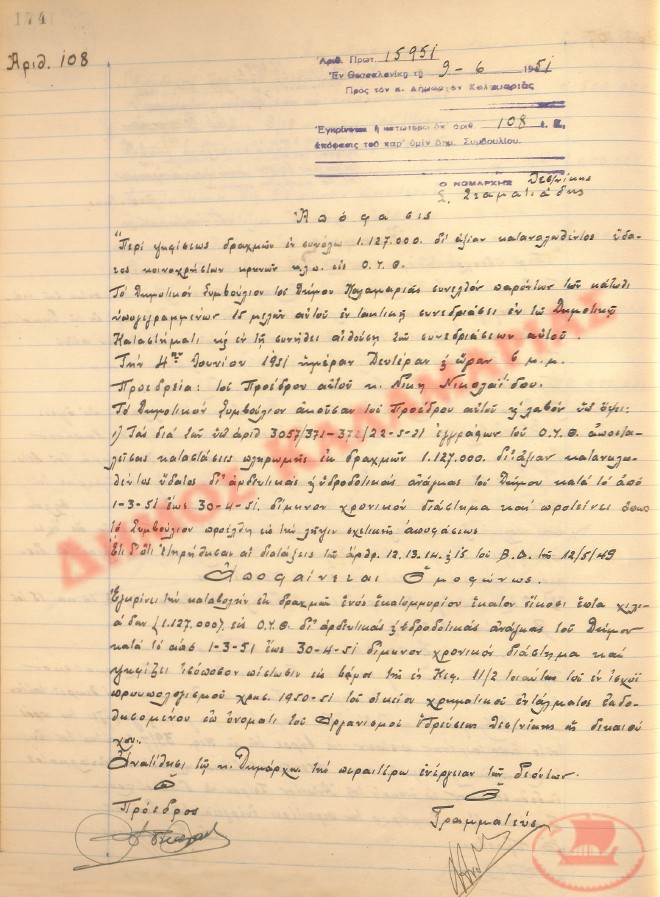 174
Αριθ. 108
Αριθ. Πρωτ. 15951
Έν Θεσσαλονίκη τῇ 9-6 1951
Πρός τόν κ. Δήμαρχον Καλαμαριᾶς
Ἐγκρίνεται ἡ κατωτέρω ὑπ' ἀριθ. 108 ἐ. ἔ.
ἀπόφασις τοῦ παρ' ὑμῖν Δημ. Συμβουλίου.
Ὁ ΝΟΜΑΡΧΗΣ Θεσ/νίκης
Σ. Σταματιάδης
Ἀπόφασις
"Περί ψηφίσεως δραχμῶν ἐν συνόλω 1.127.000. δι' ἀξίαν καταναλωθέντος ὕδα-
τος κοινοχρήστων κρηνῶν κλπ. εἰς Ο.Υ.Θ.
Τό Δημοτικόν Συμβούλιον τοῦ Δήμου Καλαμαριᾶς συνελθόν παρόντων τῶν κάτωθι
ὑπογεγραμμένων 15 μελῶν αὐτοῦ ἐν τακτικῇ συνεδριάσει ἐν τῷ Δημοτικῷ
Καταστήματι κ ἐν τῇ συνήθει αἰθούσῃ τῶν συνεδριάσεων αὐτοῦ.
Τήν 4ην Ἰουνίου 1951 ἡμέραν Δευτέραν κ ὥραν 6 μ.μ.
Προεδρεία: τοῦ Προέδρου αὐτοῦ κ. Νίκη Νικολαΐδου.
Τό Δημοτικόν Συμβούλιον ἀκοῦσαν τοῦ Προέδρου αὐτοῦ κ λαβόν ὑπ' ὄψει:
1) Τάς διά τῶν ὑπ' ἀριθ 3057/371-372/22-5-51 ἐγγράφων τοῦ Ο.Υ.Θ. ἀποστα-
λείσας καταστάσεις πληρωμῆς ἐκ δραχμῶν 1.127.000. δι' ἀξίαν καταναλω-
θέντος ὕδατος δι' ἀρδευτικάς κ ὑδροδοτικάς ἀνάγκας τοῦ Δήμου κατά τό ἀπό
1-3-51 ἕως 30-4-51. δίμηνον χρονικόν διάστημα καί προτείνει ὅπως
τό Συμβούλιον προέλθῃ εἰς τήν λῆψιν σχετικῆς ἀποφάσεως
Ἐπειδή ἐτηρήθησαν αἱ διατάξεις τῆς ἀρθρ. 12.13.14. κ 15 τοῦ Β.Δ. τῆς 12/5/49
Ἀποφαίνεται Ὁμοφώνως.
Ἐγκρίνει τήν καταβολήν ἐκ δραχμῶν ἑνός ἑκατομμυρίου ἑκατόν εἴκοσι ἑπτά χιλι-
άδων (1.127.000). εἰς Ο.Υ.Θ. δι' ἀρδευτικάς κ ὑδροδοτικάς ἀνάγκας τοῦ Δήμου
κατά τό ἀπό 1-3-51 ἕως 30-4-51 δίμηνον χρονικόν διάστημα καί
ψηφίζει ἰσόποσον πίστωσιν εἰς βάρος τῆς ἐν Κεφ. 11/2 τοιαύτης τοῦ ἐν ἰσχύϊ
προϋπολογισμοῦ χρήσ. 1950-51 τοῦ οἰκείου χρηματικοῦ ἐντάλματος ἐκδο-
θησομένου ἐπ' ὀνόματι τοῦ Ὀργανισμοῦ Ὑδρεύσεως Θεσ/νίκης ὡς δικαιού
χου.
Ἀνατίθησι τῷ κ. Δημάρχῳ τήν περαιτέρω ἐνέργειαν τῶν δεόντων.
Ὁ Ὁ
Πρόεδρος Γραμματεύς
ΔΗΜΟΣ ΚΑΛΑΜΑΡΙΑΣ